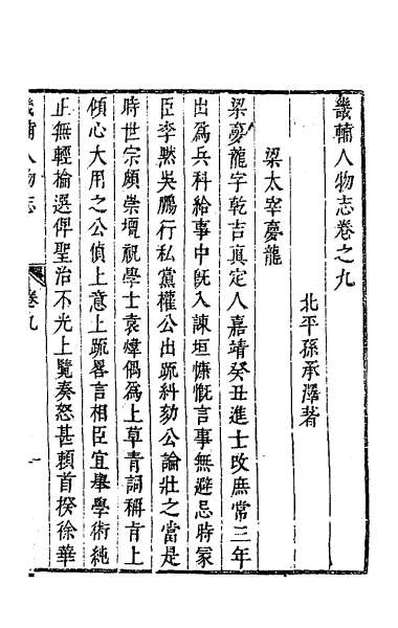 畿輔人物志卷之九
北平孫承澤著
梁太宰夢龍
梁夢龍字乾吉真定人嘉靖癸丑進士改庶常三年
出爲兵科給事中既入諫垣慷慨言事無避忌時冢
臣李黙吳鵬行私黨權公出疏糾劾公論壯之當是
時世宗頗崇壇祝學士袁煒偶爲上草青詞稱旨上
傾心大用之公偵上意上疏畧言相臣宜舉學術純
正無輕掄選俾聖治不光上覽奏怒甚頼首揆徐華
畿輔人物志
卷九
一